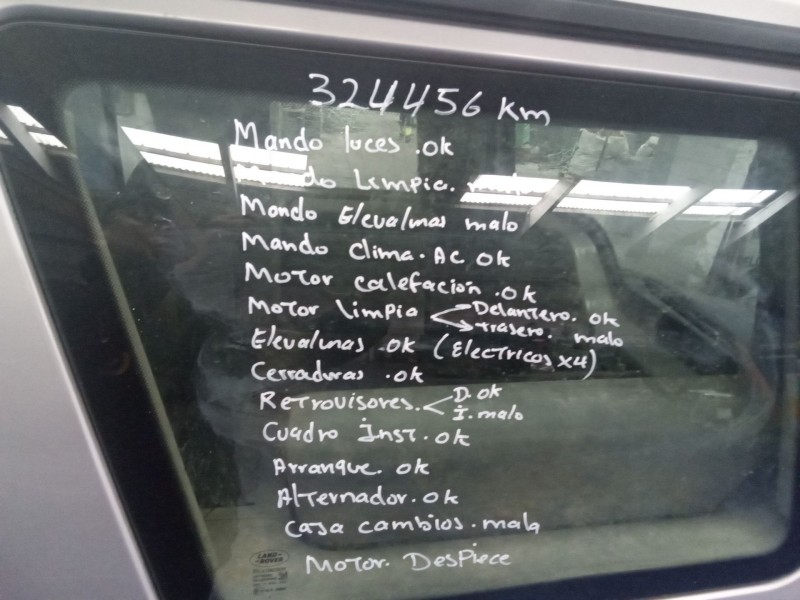 324456 Km
Mando luces .ok
Mando Limpia. malo
Mando Elevalunas malo
Mando Clima. AC OK
Motor calefacion .ok
Motor limpia Delantero. ok
trasero. malo
Elevalunas .ok (Electricos x4)
Cerraduras .ok
Retrovisores. D. ok
I. malo
Cuadro Inst. ok
Arranque. ok
Alternador. ok
Caja cambios. mala
LAND-
ROVER
Motor. Despiece